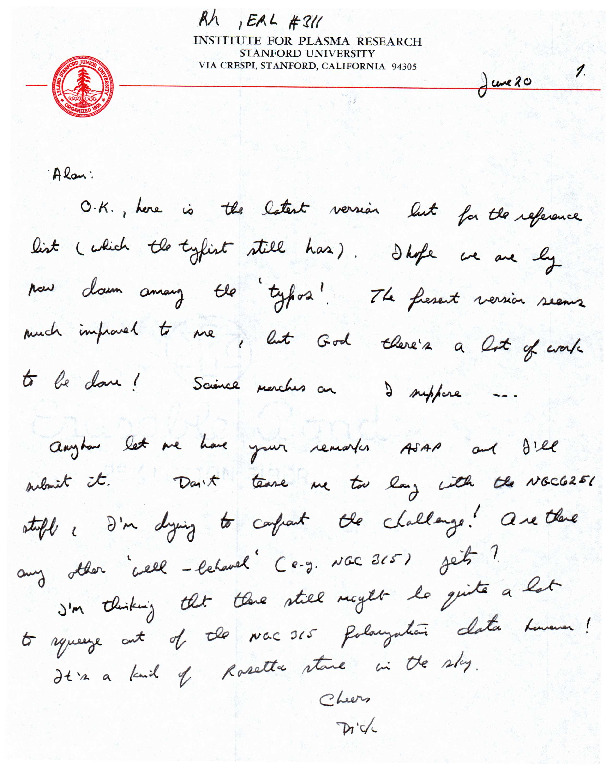 Rh , ERL #311
INSTITUTE FOR PLASMA RESEARCH
STANFORD UNIVERSITY
VIA CRESPI, STANFORD, CALIFORNIA 94305
June 20 1.
Alan:
O.K., here is the latest version but for the reference
list (which the typist still has). I hope we are by
now down among the 'typos'. The present version seems
much improved to me, but God there's a lot of work
to be done! Science marches on I suppose ---
Anyhow let me have your remarks ASAP and I'll
submit it. Don't tease me too long with the NGC6251
stuff, I'm dying to confront the challenge! Are there
any other 'well-behaved' (e.g. NGC 315) jets?
I'm thinking that there still might be quite a lot
to squeeze out of the NGC 315 polarization data however!
It's a kind of Rosetta stone in the sky.
Cheers
Dick